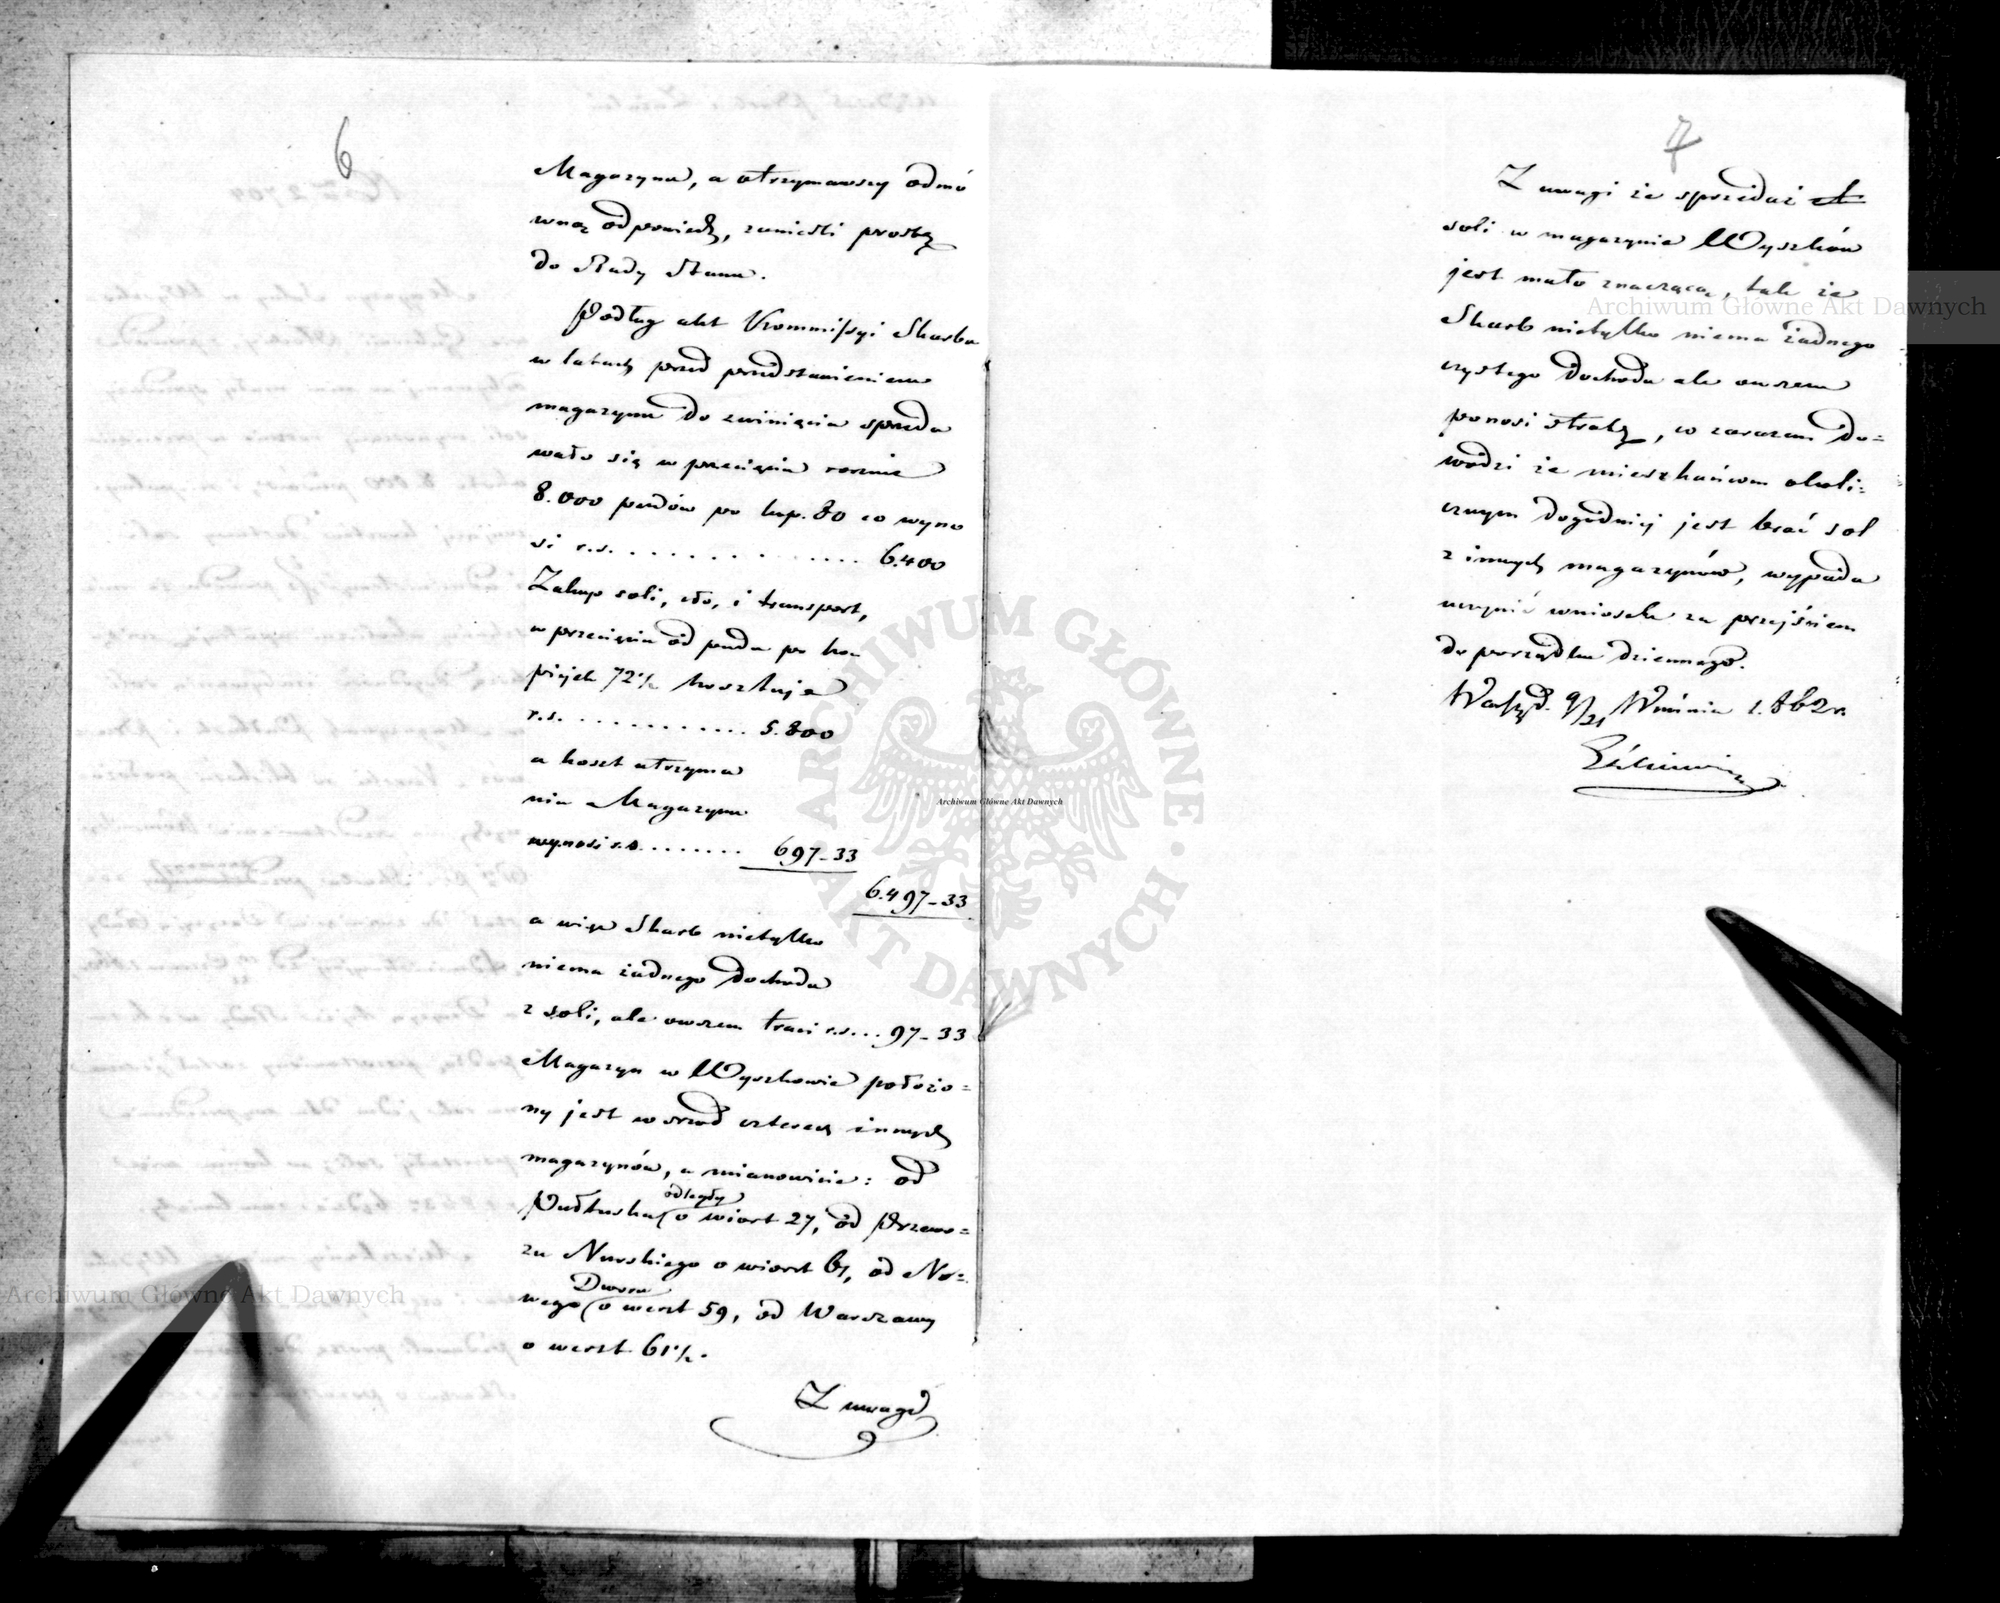 6
Magazynu, a otrzymawszy odmó
wną odpowiedź, zanieśli prośbę
do Rady Stanu.
Podług akt Kommissyi Skarbu
w latach przed przedstawieniem
magazynu do zwinięcia sprzeda
wało się w przecięciu rocznie
8.000 pudów po kop. 80 co wyno
si r.s. . . . . . . . . . . . . . . 6.400
Zakup soli, cło, i transport,
w przecięciu od puda po ko
piejek 72½ kosztuje
r.s. . . . . . . . . . . . . 5.800
a koszt utrzyma
nia Magazynu
wynosi r.s. . . . . . . . 697-33
6.497-33
a więc Skarb nietylko
niema żadnego dochodu
z soli, ale owszem traci r.s. . . 97-33
Magazyn w Wyszkowie położo=
ny jest wsrod czterech innych
magazynów, a mianowicie: od
Pułtuska odległy o wiorst 27, od Przewo=
zu Nurskiego o wiorst 61, od No=
wego Dworu o werst 59, od Warszawy
o werst 61½.
Z uwagi
7
Z uwagi że sprzedaż
soli w magazynie Wyszków
jest mało znaczącą, tak że
Skarb nietylko niema żadnego
czystego dochodu ale owszem
ponosi stratę, co zarazem do=
wodzi że mieszkańcom okoli=
cznym dogodniej jest brać sol
z innych magazynów, wypada
uczynić wniosek za przejściem
do porządku dziennego.
9/21 Wrześnía 1862 r.
Archiwum Główne Akt Dawnych
Archiwum Główne Akt Dawnych
Archiwum Główne Akt Dawnych
ARCHIWUM GŁÓWNE AKT DAWNYCH